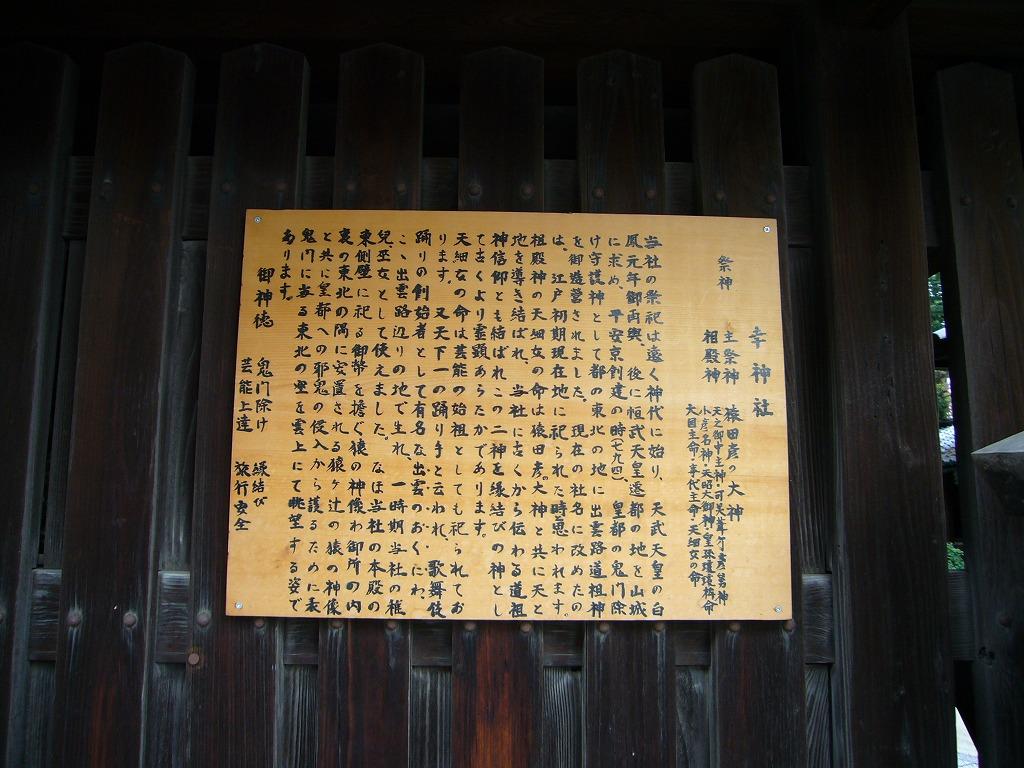 幸神社
祭神
主祭神 猿田彦の大神
相殿神 天之御中主神・可美葦牙彦舅神
少彦名神・天照大御神・皇孫瓊瓊杵命
大国主命・事代主命・天細女の命
当社の祭祀は遠く神代に始り、天武天皇の白
鳳元年御再興、後に恒武天皇遷都の地を山城
に求め、平安京創建の時(七九四)、皇都の鬼門除
け守護神として都の東北の地に出雲路道祖神
を御造営されました。現在の社名に改めたの
は、江戸初期現在地に祀られた時思われます。
祖殿神の天細女の命は猿田彦大神と共に天と
地を導き結ばれ、当社に古くから伝わる道祖
神信仰とも結ばれこの二神を縁結びの神とし
て古くより霊顕あらたかであります。
天細女の命は芸能の始祖としても祀られてお
ります。又天下一の踊り手と云われ、歌舞伎
踊りの創始者として有名な出雲のおくにわ、
こゝ出雲路辺りの地で生れ、一時期当社の稚
児、巫女として使えました。なほ当社の本殿の
東側壁に祀る御幣を擔ぐ猿の神像わ御所の内
裏の東北の隅に安置される猿ヶ辻の猿の神像
と共に皇都への邪鬼の侵入から護るために表
鬼門に当る東北の空を雲上にて眺望する姿で
あります。
御神徳 鬼門除け 縁結び
芸能上達 旅行安全